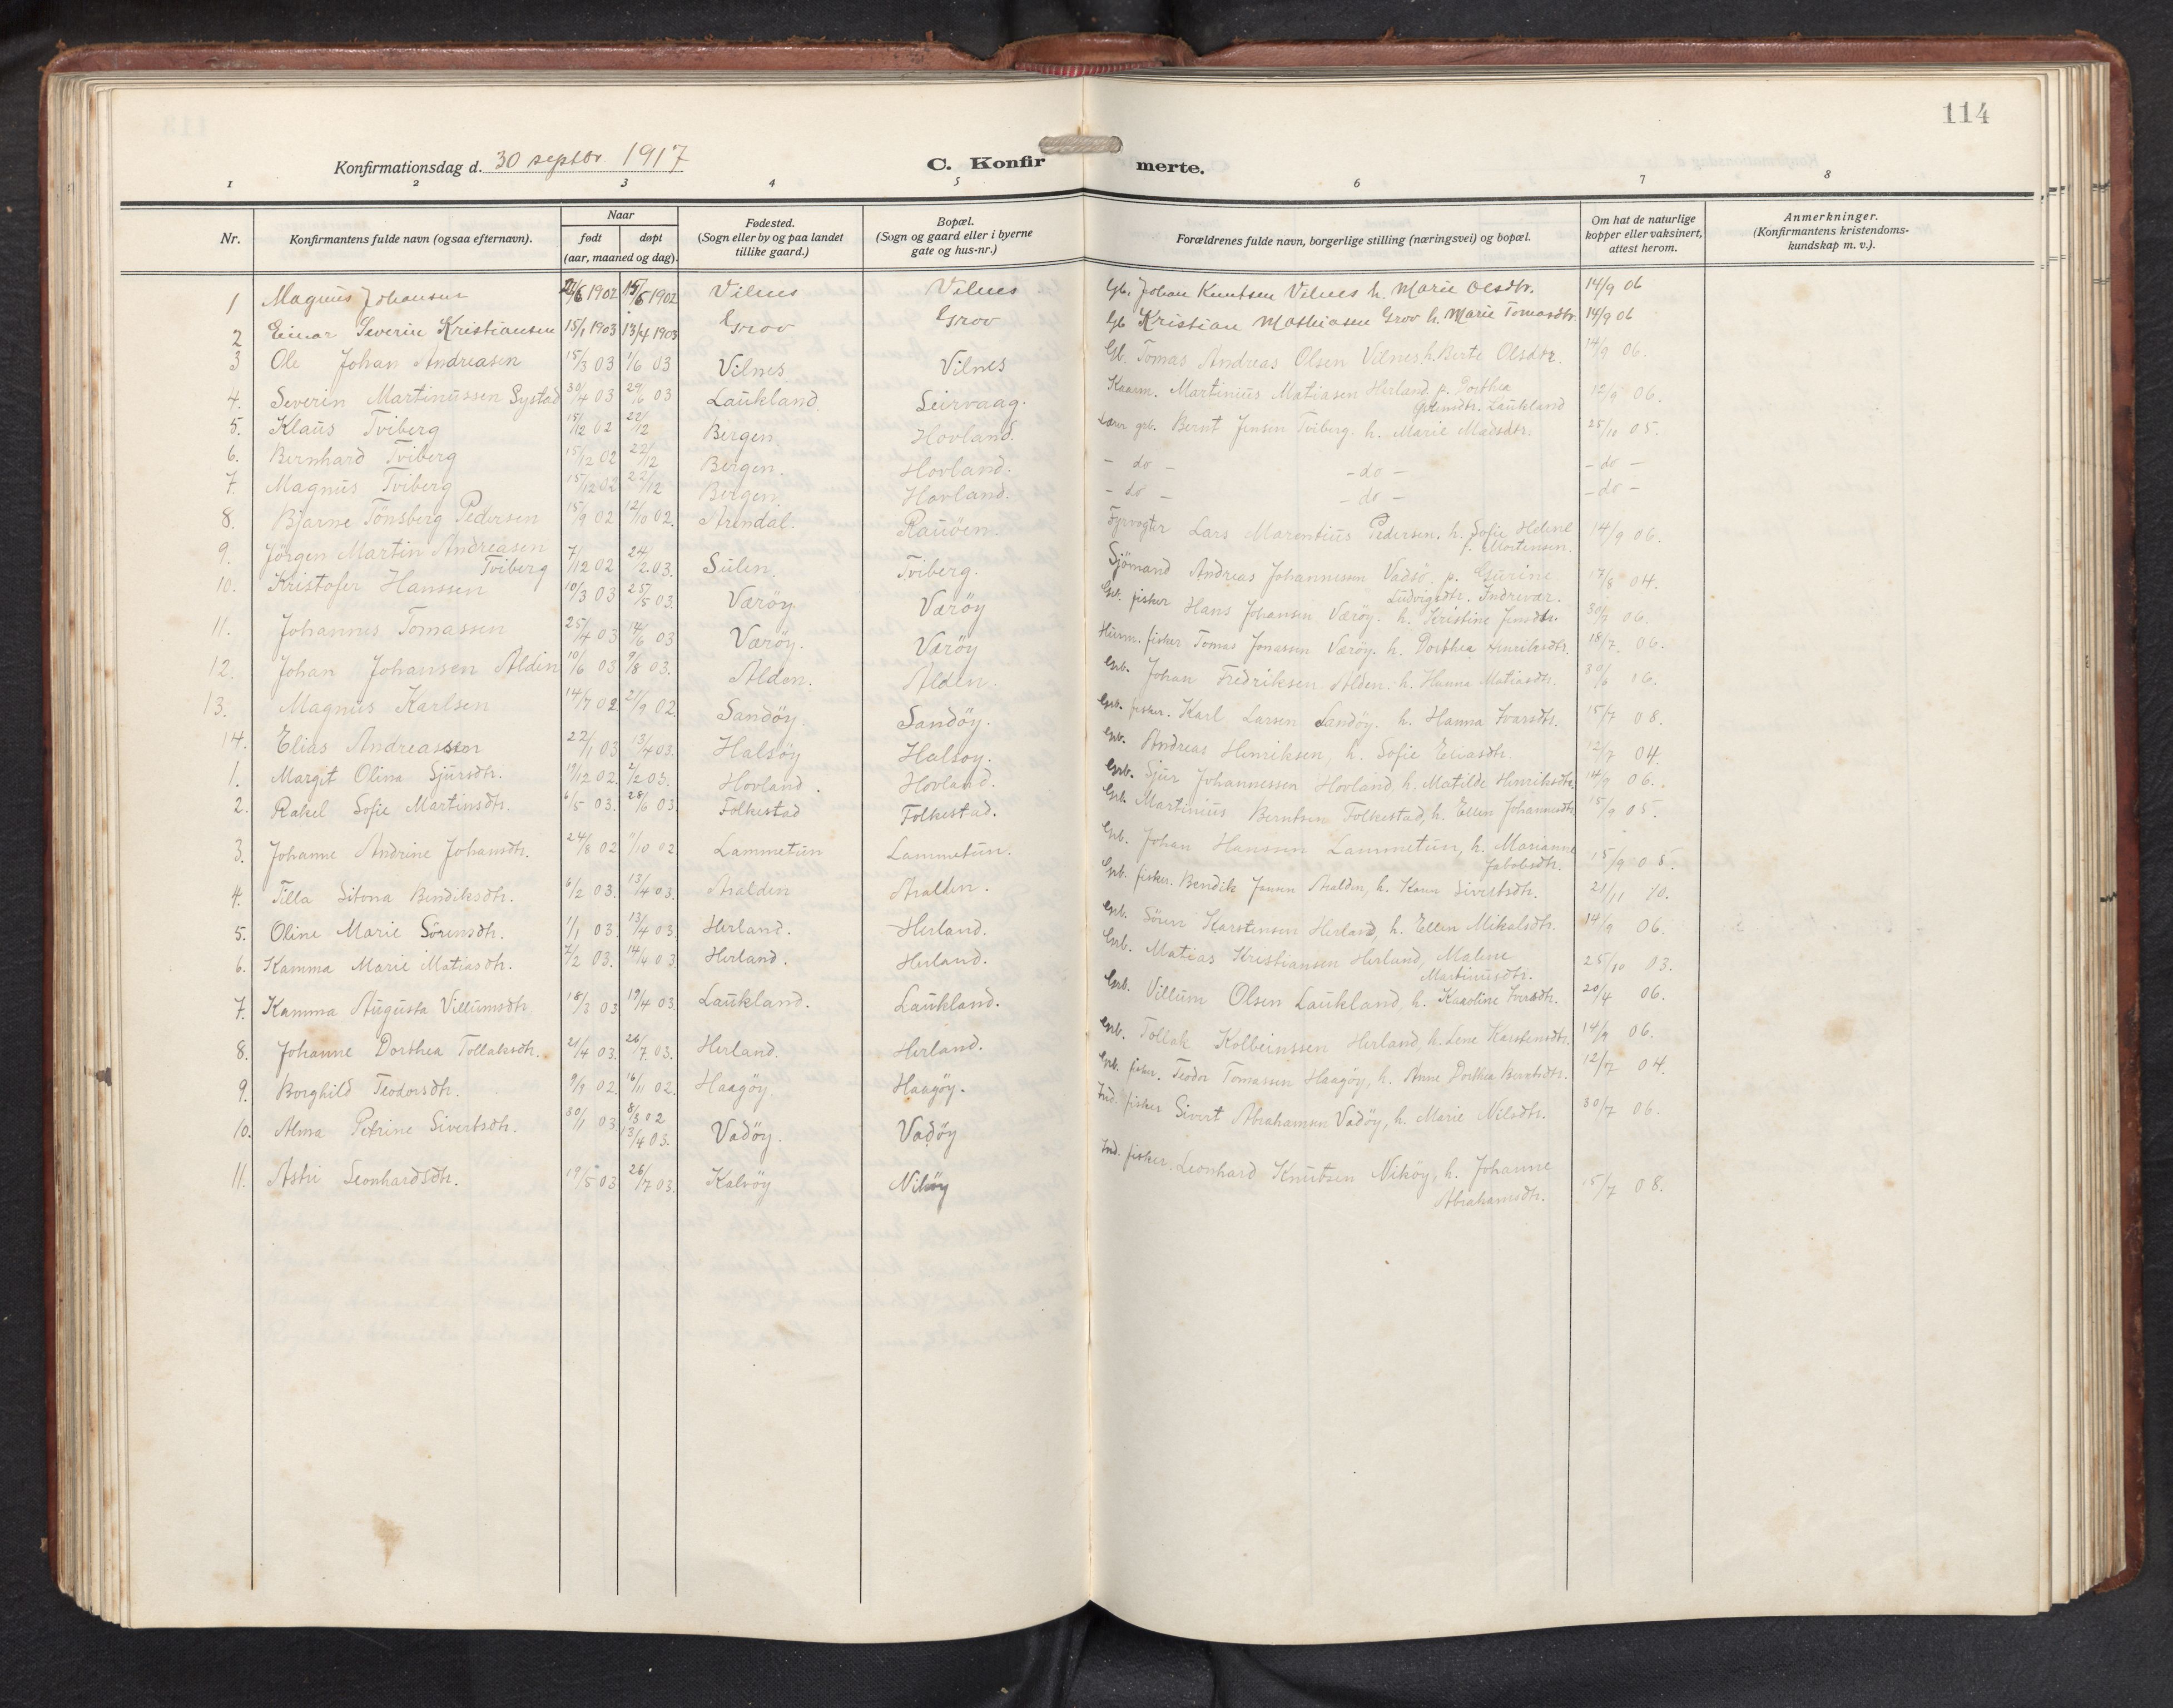 114
Konfirmationsdag d. 30 septbr 1917
C. Konfirmerte.
1 2 3 4 5 6 7 8
Nr.
Konfirmantens fulde navn (ogsaa efternavn).
Naar
født døpt
(aar, maaned og dag).
Fødested.
(Sogn eller by og paa landet
tillike gaard.)
Bopæl.
(Sogn og gaard eller i byerne
gate og hus-nr.)
Forældrenes fulde navn, borgerlige stilling (næringsvei) og bopæl.
Om hat de naturlige
kopper eller vaksinert,
attest herom.
Anmerkninger.
(Konfirmantens kristendoms-
kundskap m. v.).
1 Magnus Johansen 1902 1902 Vilnes Vilnes Gb. Johan Knutsen Vilnes h. Marie Olsdtr. 14/9 06
2 Einar Severin Kristiansen 15/1 1903 13/4 1903 Grov Grov Gb Kristian Mathiasen Grov h. Marie Tomasdtr. 14/9 06
3 Ole Johan Andreasen 15/3 03 1/6 03 Vilnes Vilnes Gb. Tomas Andreas Olsen Vilnes h. Berte Olsdtr. 14/9 06.
4. Severin Martinussen Systad 30/4 03 29/6 03 Laukland. Leirvaag. Kaarm. Martinius Matiasen Herland p. Dorthea
Laukland 12/9 06.
5. Klaus Tviberg 15/12 02 22/12 Bergen Hovland. Lærer grb. Bernt Jensen Tviberg. h. Marie Madsdtr. 25/10 05.
6. Bernhard Tviberg 15/12 02 22/12 Bergen. Hovland. - do - - do - - do -
7. Magnus Tviberg 15/12 02 22/12 Bergen Hovland. - do - - do - - do -
8. Bjarne Tönsberg Pedersen 15/9 02 12/10 02. Arendal. Rauöen. Fyrvogter Lars Marentius Pedersen. h. Sofie Helene
f. Mortensen. 14/9 06.
9. Jörgen Martin Andreasen
Tviberg 7/12 02 24/2. 03. Sulen. Tviberg. Sjömand Andreas Johannessen Vadsö. p. Gurine
Ludvigsdtr. Indrevær. 17/8 04.
10. Kristofer Hanssen 10/3 03 25/5 03. Væröy. Væröy Grb. fisker Hans Johansen Væröy. h. Kristine Jensdtr. 30/7 06.
11. Johannes Tomassen 25/4 03 14/6 03 Væröy. Væröy Husm. fisker Tomas Jonassen Væröy. h. Dorthea Henriksdtr. 18/7. 06.
12. Johan Johansen Alden 10/6 03 9/8 03. Alden. Alden. Grb. Johan Fredriksen Alden. h. Hanna Matiasdtr. 30/6 16.
13. Magnus Karlsen 14/7 02 21/9 02. Sandöy. Sandöy. Grb. fisker. Karl Larsen Sandöy. h. Hanna Ivarsdtr. 15/7 08.
14. Elias Andreassen 22/1 03 13/4 03. Halsöy Halsöy. Grb. Andreas Henriksen, h. Sofie Eliasdtr. 12/7 04.
1. Margit Olina Sjursdtr. 19/12 02. 2/2 03. Hovland. Hovland. Grb. Sjur Johannessen Hovland, h. Matilde Henriksdtr. 14/9 06.
2. Rakel Sofie Martinsdtr. 6/5 03. 28/6 03 Folkestad Folkestad. Grb. Martinius Berntsen Folkestad, h. Ellen Johannesdtr. 15/9 05.
3. Johanne Andrine Johansdtr. 24/8 02 /10 02 Lammetun Lammetun. Grb. Johan Hanssen Lammetun, h. Marianne
Jakobsdtr. 15/9 05.
4. Tilla Bendiksdtr. 6/2 03. 13/4 03. Aralden Aralden. Grb. fisker. Bendik Jansen Aralden, h. Sivertsdtr. 21/11 10.
5. Oline Marie Sörensdtr. 1/1 03. 13/4 03 Herland. Herland. Grb. Sören Karstensen Herland, h. Ellen Mikalsdtr. 14/9 06.
6. Kamma Marie Matiasdtr. 7/2 03. 14/4 03 Herland. Herland. Grb. Matias Kristiansen Herland, Malene
Martinusdtr. 25/10 03.
7. Kamma Augusta Villumsdtr 18/3 03 19/4 03 Laukland. Laukland. Grb. Villum Olsen Laukland, h. Karoline Iversdtr. 20/4 06.
8. Johanne Dorthea Tollaksdtr. 21/4 03. 26/7. 03. Herland. Herland. Grb. Tollak Kolbeinssen Herland, h. Lene Karstensdtr. 14/9 06.
9. Borghild Teodorsdtr. 9/9 02. 16/11 02. Haagöy. Haagöy. Grb. fisker. Teodor Tomassen Haagöy, h. Anne Dorthea Berntsdtr. 12/7 04.
10. Alma Petrine Sivertsdtr. 30/1 03. 8/3 02
13/4 03. Vadöy. Vadöy Ind. fisker Sivert Abrahamsen Vadöy, h. Marie Nilsdtr. 30/7 06.
11. Astri Leonhardsdtr. 19/5 03 26/7 03. Kalvöy Niköy Ind. fisker. Leonhard Knutsen Niköy, h. Johanne
Abrahamsdtr. 15/7 08.